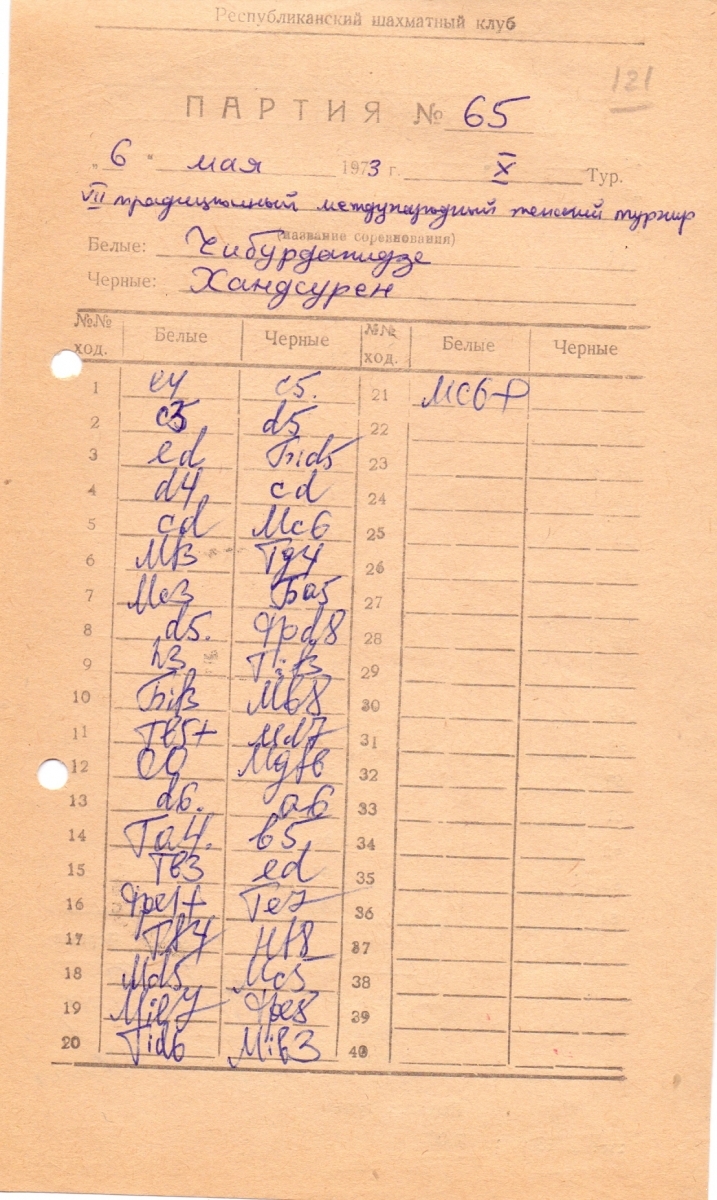 Республиканский шахматный клуб
121
ПАРТИЯ № 65
„ 6 " мая 1973 г. X Тур.
VII традиционный международный женский турнир
(название соревнования)
Белые: Чибурданидзе
Черные: Хандсурен
№№ ход. Белые Черные №№ ход. Белые Черные
1 e4 c5. 21 Мc6+
2 c3 d5 22
3 ed Ѣid5 23
4 d4 cd 24
5 cd Мc6 25
6 Мf3 Тg4 26
7 Мc3 Ѣa5 27
8 d5. Фрd8 28
9 h3 Тif3 29
10 Ѣif3 Мb8 30
11 Тb5+ Мd7 31
12 00 Мgf6 32
13 d6. a6 33
14 Тa4. b5 34
15 Тb3 ed 35
16 Фре1+ Те7 36
17 Тf4 Нf8 37
18 Мd5 Мc5 38
19 Мie7 Фре8 39
20 Тid6 Мib3 40